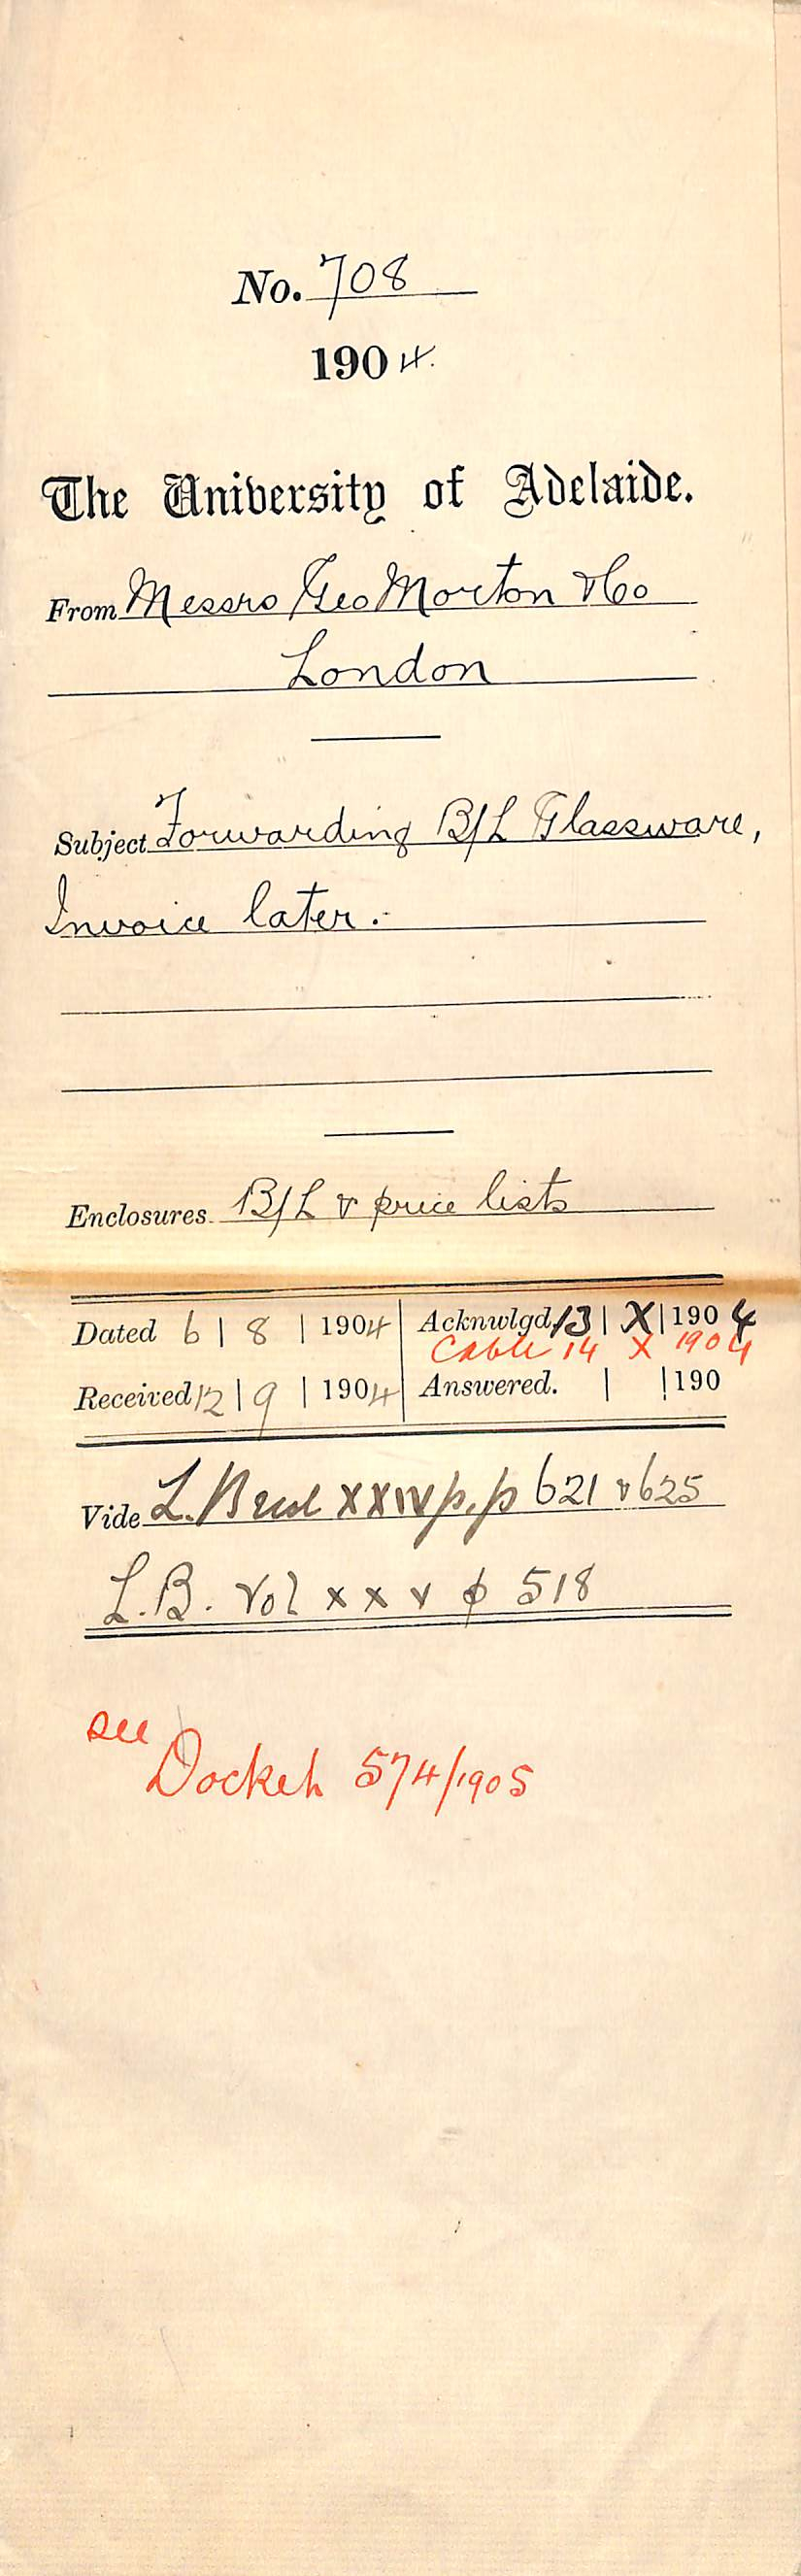 No. 708
1904.
The University of Adelaide.
From Messrs Geo Morton & Co
London
Subject Forwarding B/L Glassware,
Invoice later.
Enclosures. B/L & price lists
Dated 6 | 8 | 1904 Acknwlgd 13 | X | 1904
Cable 14 X 1904
Received 12 | 9 | 1904 Answered. | | 190
Vide L. B vol XXIV p.p 621 & 625
L.B. Vol XXV p 518
see
Docket 574/1905